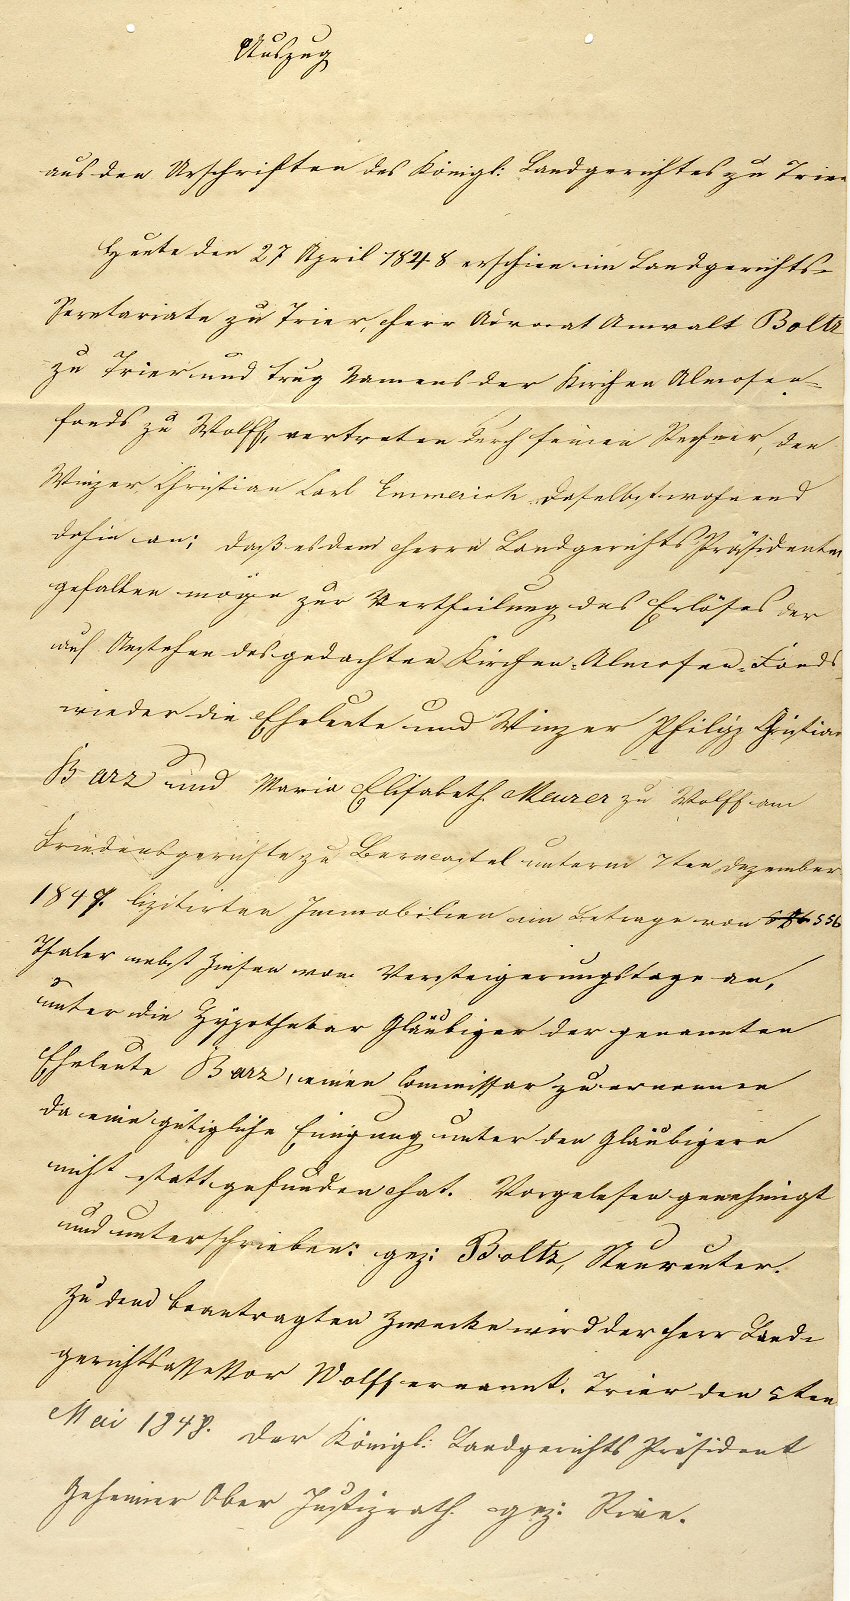 Auszug
aus den Urschriften des Königl: Landgerichtes zu Trier
Heute den 27 April 1848 erschien im Landgerichts-
Secretariate zu Trier, Herr Advocat Anwalt Boltz
zu Trier und trug Namens der Kirchen Almosen-
fonds zu Wolff, vertreten durch seinen Rechner, den
Winzer Christian Carl Emmerich daselbst wohnend
dahin an; daß es dem Herrn Landgerichts Präsidenten
gefallen möge zur Vertheilung des Erlöses der
auf Anstehen des gedachten Kirchen-Almosen-Fonds
wieder die Eheleute und Winzer Philipp Christian
Barz und Maria Elisabeth Meurer zu Wolff am
Friedensgerichte zu Berncastel unterm 7ten Dezember
1847. lizitirten Immobilien im Betrage von 556
Thaler nebst Zinsen vom Versteigerungstage an,
unter die Hypothekar Gläubiger der genannten
Eheleute Barz, einen Commissar zu ernennen
da eine gütigliche Einigung unter den Gläubigern
nicht statt gefunden hat. Vorgelesen genehmigt
und unterschrieben: gez: Boltz, Neureuter.
Zu dem beantragten Zwecke wird der Herr Land-
gerichtsassessor Wolff ernannt. Trier den 5ten
Mai 1848. Der Königl: Landgerichts Präsident
Geheimer Ober Justizrath gez: Rive.